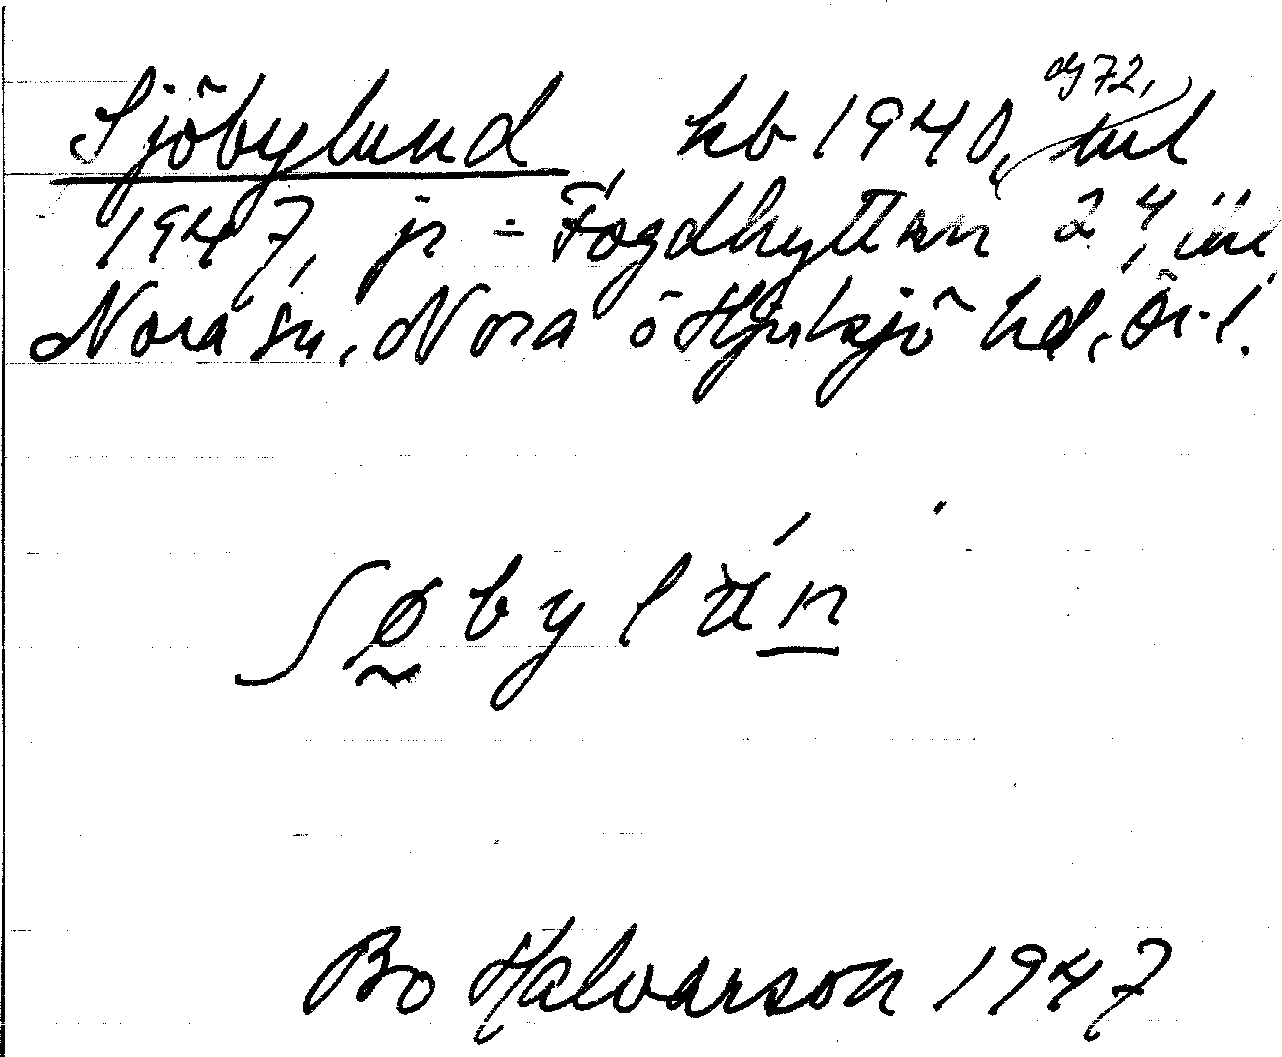 Sjöbylund kb 1940, dg 72,
1947, jr = Fogdhyttan 2⁴,
Nora sn, Nora ö Hjulsjö hd, Ör. l.
ʃø̰bylu̇́n̲
Bo Halvarson 1947